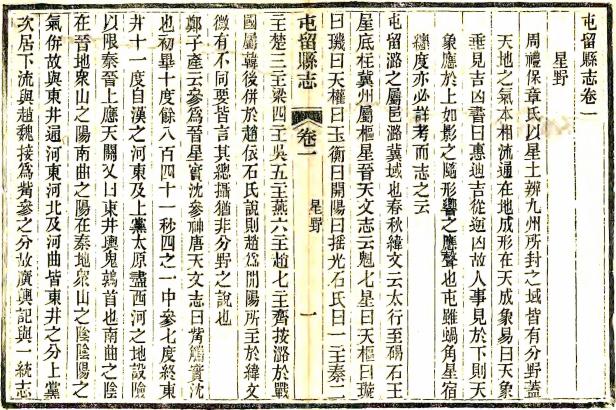 屯留縣志卷一
星野
周禮保章氏以星土辨九州所封之域皆有分野蓋
天地之氣本相流通在地成形在天成象易曰天象
垂見吉凶書曰惠迪吉從逆凶故人事見於下則天
象應於上如影之隨形響之應聲也屯雖蝸角星宿
纏度亦必詳考而志之云
屯留潞之屬邑潞冀域也春秋緯文云太行至碣石王
屋底柱冀州屬樞星晉天文志云魁七星曰天樞曰璇
曰璣曰天權曰玉衡曰開陽曰搖光石氏曰一主秦二
屯留縣志
卷一
星野
一
主楚三主梁四主吳五主燕六主趙七主齊按潞於戰
國屬韓後併於趙依石氏說則趙爲開陽所主於緯文
微有不同要皆言其總攝猶非分野之說也
鄭子產云參爲晉星實沈參神唐天文志曰觜觿實沈
也初畢十度餘八百四十一秒四之一中參七度終東
井十一度自漢之河東及上黨太原盡西河之地設險
以限秦晉上應天關又曰東井輿鬼鶉首也南曲之陰
在晉地眾山之陽南曲之陽在秦地眾山之陰陰陽之
氣併故與東井通河東河北及河曲皆東井之分上黨
次居下流與趙魏接爲觜參之分故廣輿記與一統志